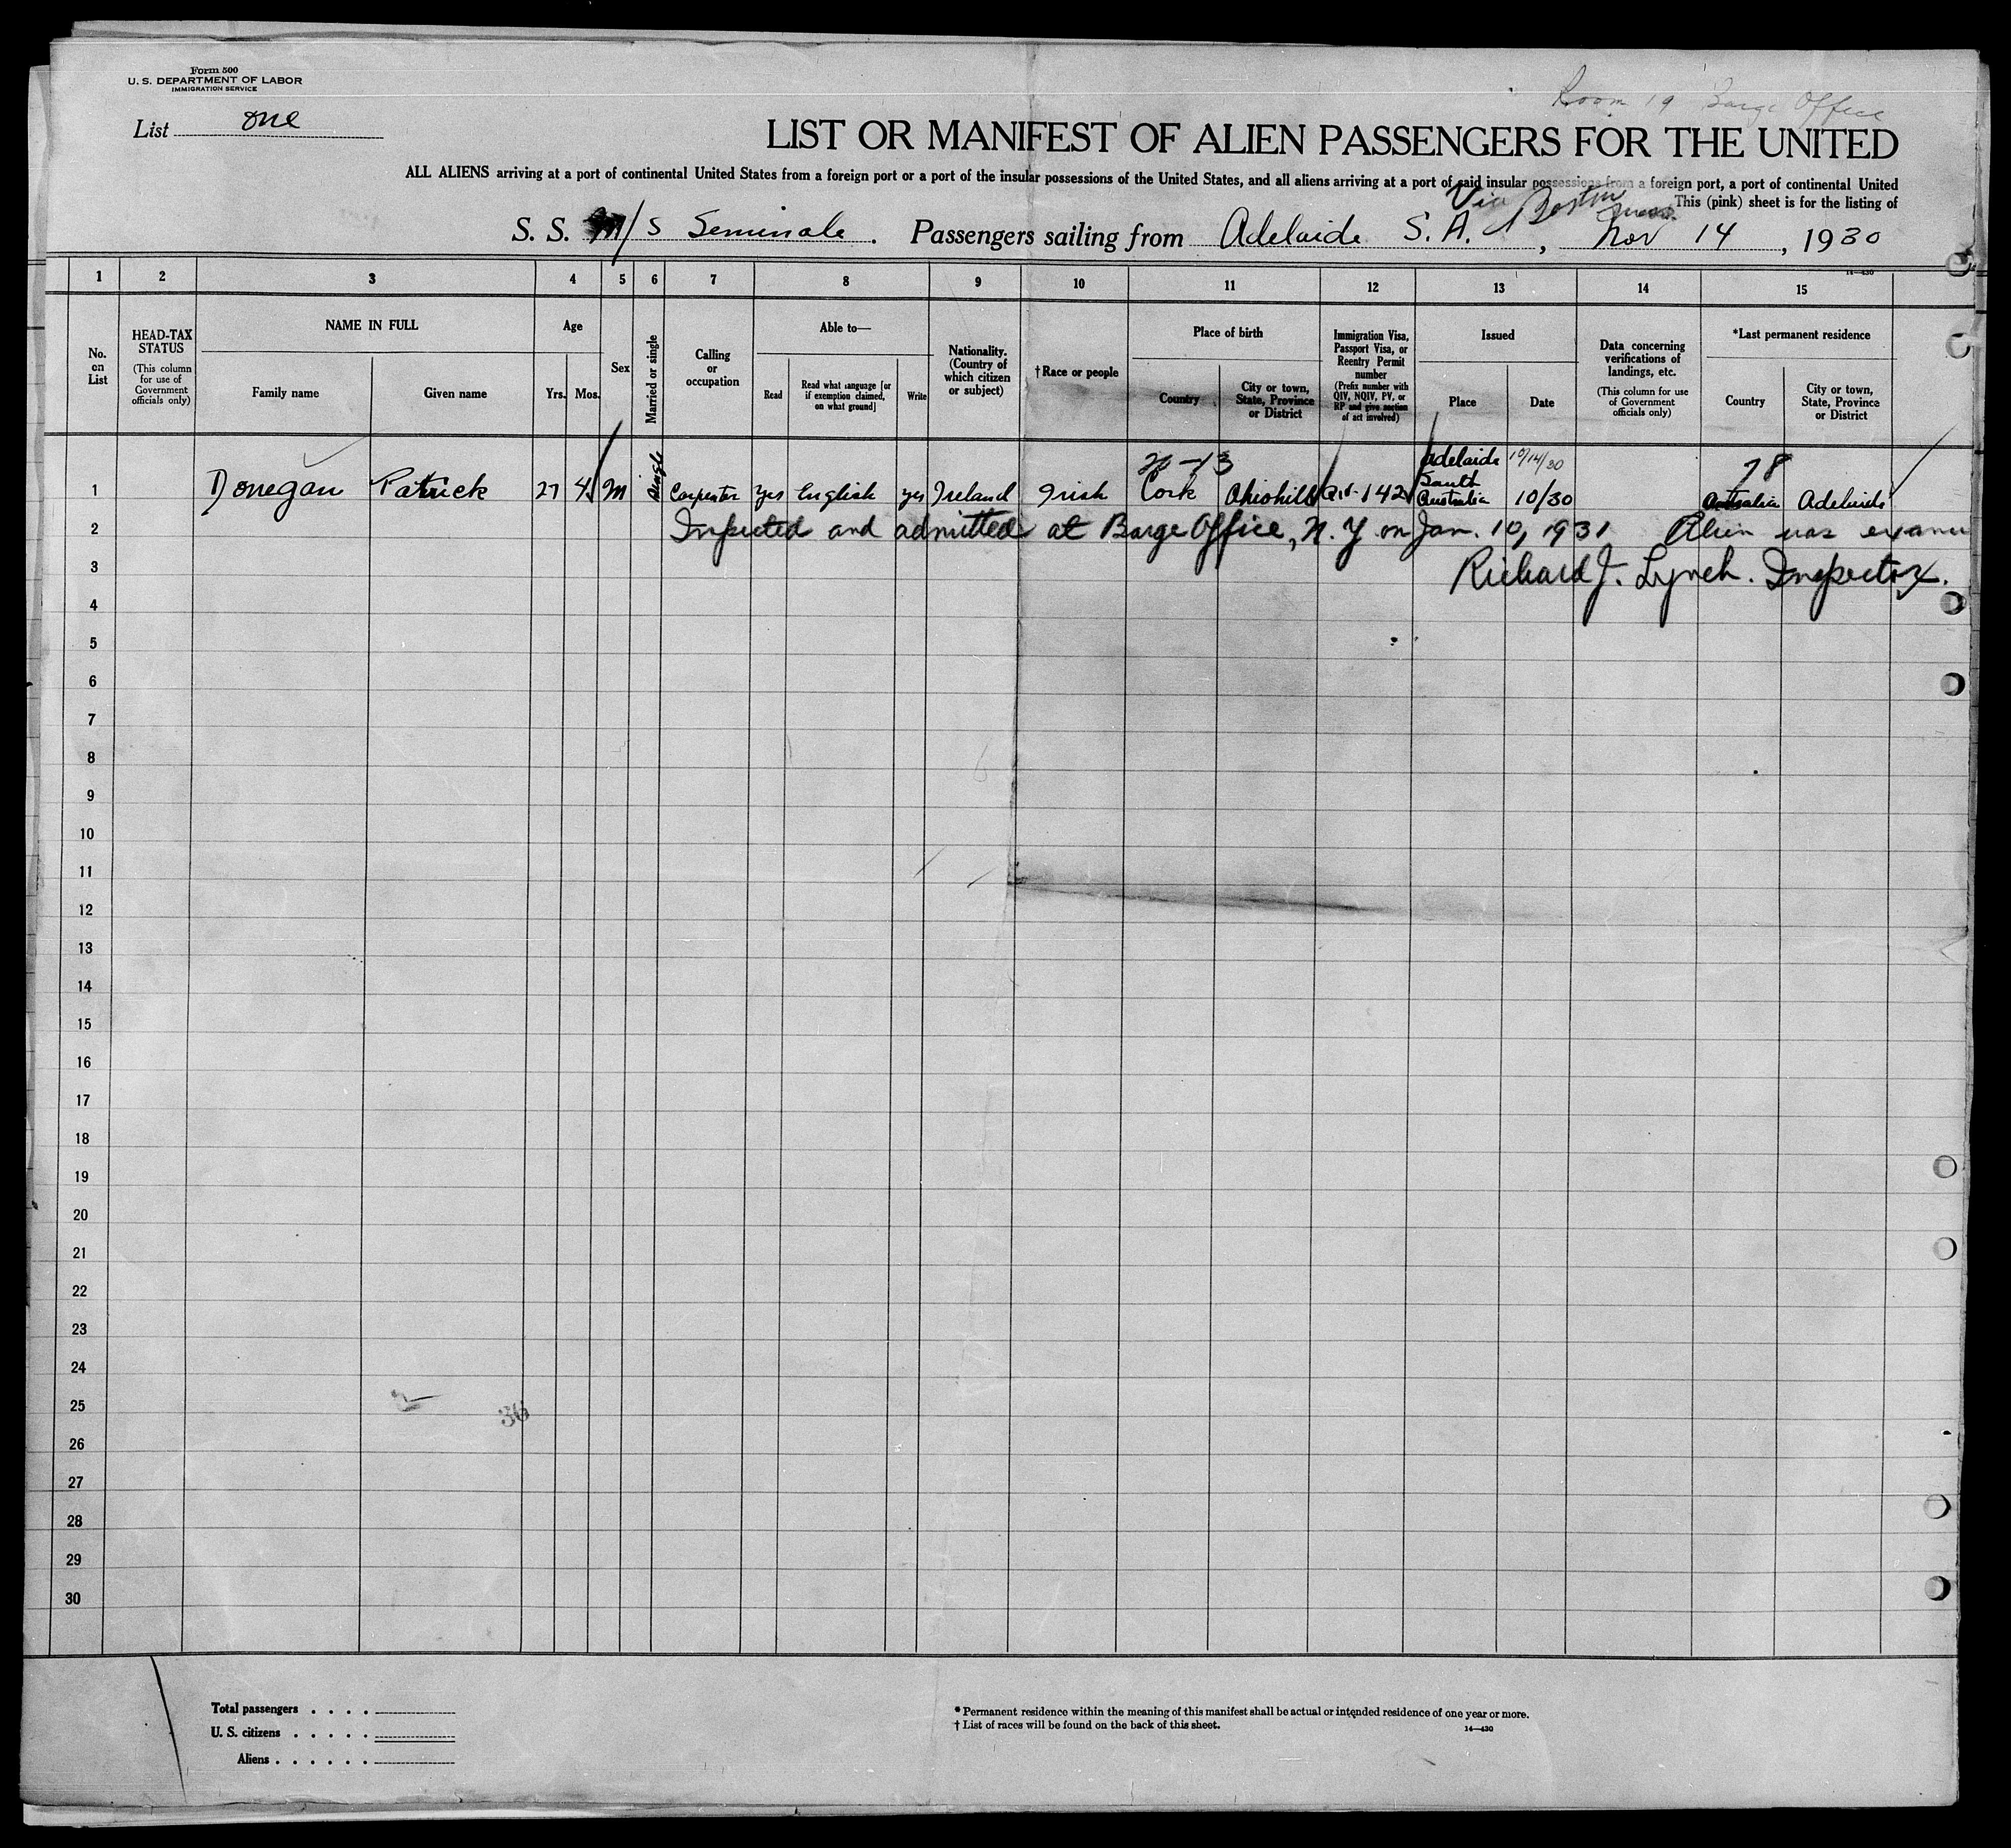 Form 500
U. S. DEPARTMENT OF LABOR
IMMIGRATION SERVICE
Room 19 Barge Office
List one
LIST OR MANIFEST OF ALIEN PASSENGERS FOR THE UNITED
ALL ALIENS arriving at a port of continental United States from a foreign port or a port of the insular possessions of the United States, and all aliens arriving at a port of said insular possessions from a foreign port, a port of continental United
This (pink) sheet is for the listing of
Via Boston Mass.
S. S. M/S Seminole. Passengers sailing from Adelaide S. A., Nov 14, 1930
14—430
1 2 3 4 5 6 7 8 9 10 11 12 13 14 15
No. on List
HEAD-TAX STATUS (This column for use of Government officials only)
NAME IN FULL
Family name Given name
Age
Yrs. Mos.
Sex
Married or single
Calling or occupation
Able to—
Read Read what language [or if exemption claimed, on what ground] Write
Nationality. (Country of which citizen or subject)
†Race or people
Place of birth
Country City or town, State, Province or District
Immigration Visa, Passport Visa, or Reentry Permit number (Prefix number with QIV, NQIV, PV, or RP and give section of act involved)
Issued
Place Date
Data concerning verifications of landings, etc. (This column for use of Government officials only)
*Last permanent residence
Country City or town, State, Province or District
Adelaide 10/14/30
78
1 Donegan Patrick 27 4 M Single Carpenter yes English yes Ireland Irish Cork 142 South Australia 10/30 Australia Adelaide
2 Inspected and admitted at Barge Office, N. Y. on Jan. 10, 1931 Alien was
3 Richard J. Lynch. Inspector.
4
5
6
7
8
9
10
11
12
13
14
15
16
17
18
19
20
21
22
23
24
25
26
27
28
29
30
Total passengers . . . .
U. S. citizens . . . . .
Aliens . . . . . .
* Permanent residence within the meaning of this manifest shall be actual or intended residence of one year or more.
† List of races will be found on the back of this sheet.
14—430